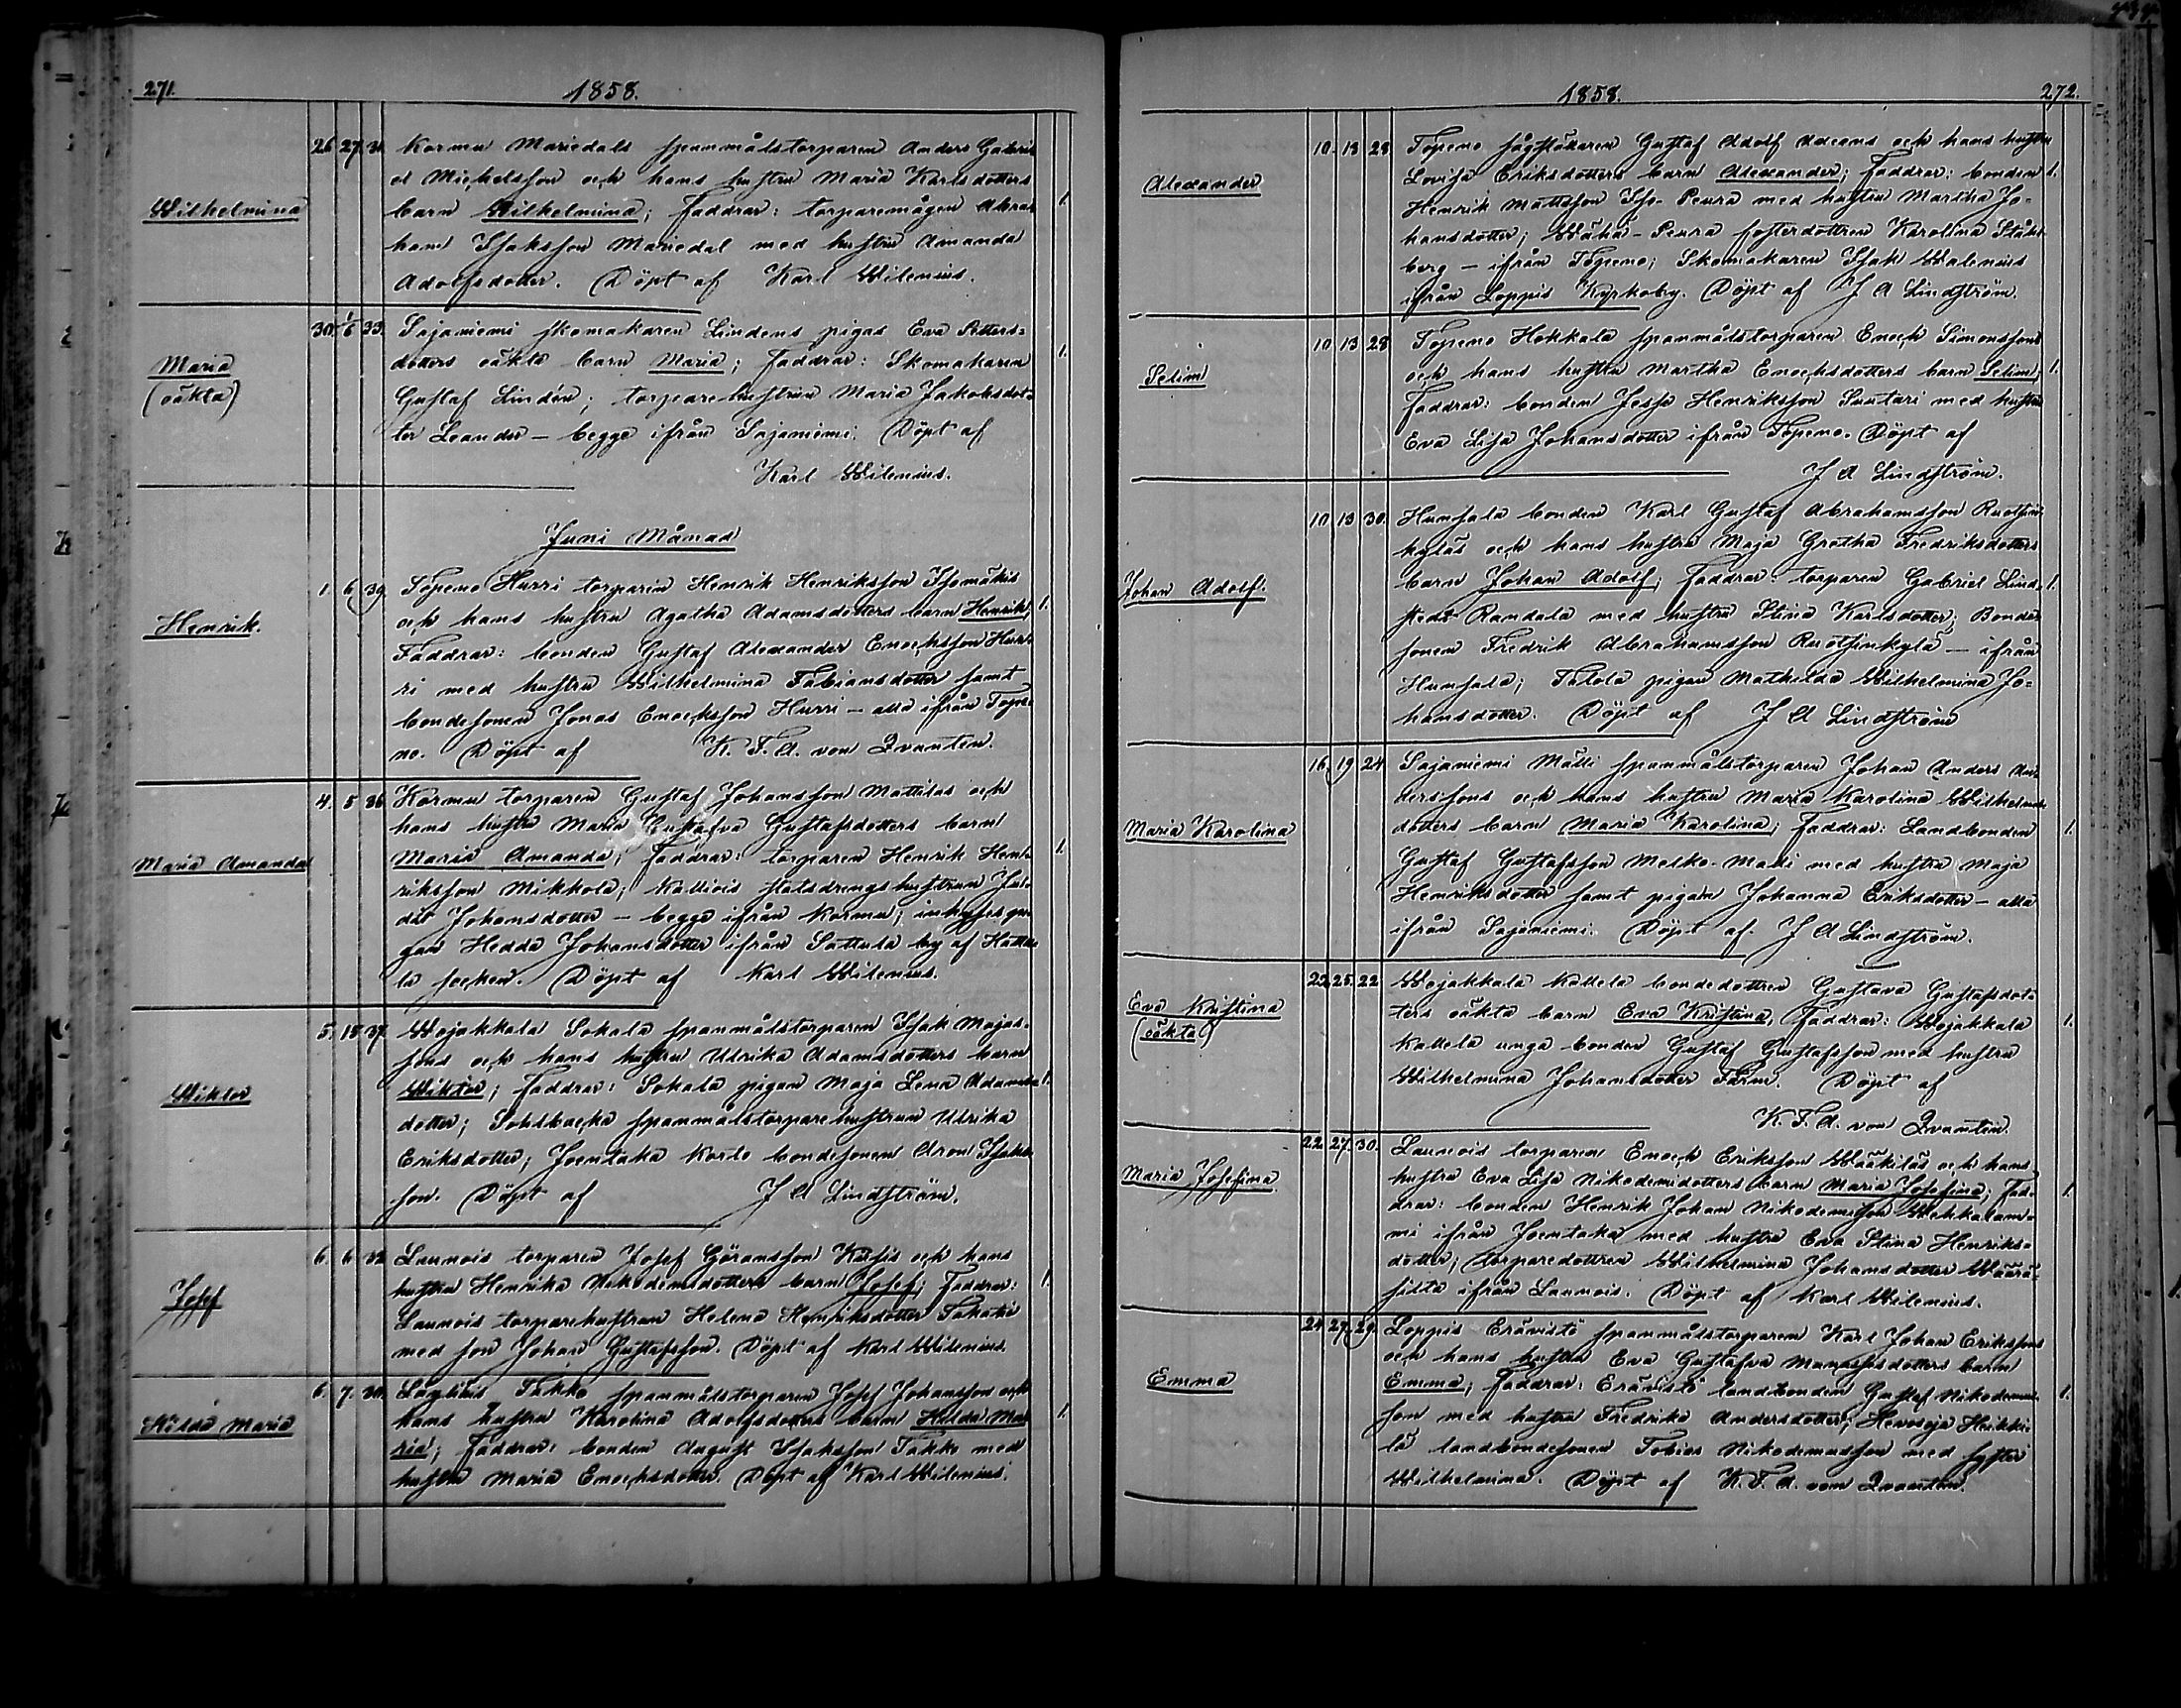 271.
1858.
Wilhelmina
26. 27. 31. Kormu Mariedals spanmålstorparen Anders Gabri-
el Michelsson och hans hustru Maria Karlsdotters
barn Wilhelmina; Faddrar: torparemågen Abra-
ham Isaksson Mariedal med hustru Amanda
Adolfsdotter. Döpt af Karl Wilenius.
1.
Maria
(oäkta)
30. 1/6 33. Sajaniemi skomakaren Lindens pigas Eva Petters-
dotters oäkta barn Maria; Faddrar: Skomakaren
Gustaf Lindén; torparehustrun Maria Jakobsdot-
ter Leander – begge ifrån Sajaniemi. Döpt af
Karl Wilenius.
1.
Juni Månad
Henrik.
1. 6. 39. Topeno Hurri torparen Henrik Henriksson Isomäkis
och hans hustru Agatha Adamsdotters barn Henrik;
Faddrar: bonden Gustaf Alexander Enochsson Hur-
ri med hustru Wilhelmina Fabiansdotter samt
bondesonen Jonas Enochsson Hurri – alla ifrån Tope-
no. Döpt af K. F. A. von Qvanten.
1.
Maria Amanda
4. 5. 36. Kormu torparen Gustaf Johansson Mattilas och
hans hustru Maria Gustafva Gustafsdotters barn
Maria Amanda; Faddrar: torparen Henrik Hen-
riksson Mikkola; Kalliois statsdrengshustrun Ju-
dit Johansdotter – begge ifrån Kormu; inhyses pi-
gan Hedda Johansdotter ifrån Sattula by af Hattu-
la socken. Döpt af Karl Wilenius.
1.
Wiktor
5. 13. 37. Wojakkala Sokala spanmålstorparen Isak Majas-
sons och hans hustru Ulrika Adamsdotters barn
Wiktor; Faddrar: Sokala pigan Maja Lena Adams-
dotter; Sohlbacka spanmålstorparehustrun Ulrika
Eriksdotter; Joentaka Korte bondesonen Aron Isaks-
son. Döpt af J A Lindström.
1.
Josef
6. 6. Launois torparen Josef Göransson Kuisis och hans
hustru Henrika Nikodemidotters barn Josef; Faddrar:
Launois torparehustrun Helena Henriksdotter Sakari
med son Johan Gustafsson. Döpt af Karl Wilenius.
1.
Hilda Maria
6. 7. Läyliäis Takko spanmålstorparen Josef Johansson och
hans hustru Karolina Adolfsdotters barn Hilda Ma-
ria; Faddrar: bonden August Isaksson Takko med
hustru Maria Enochsdotter. Döpt af Karl Wilenius.
1.
1858.
272.
Alexander
10. 13 28 Topeno sågställaren Gustaf Adolf Adeans och hans hustru
Lovisa Eriksdotters barn Alexander; Faddrar: bonden
Henrik Mattsson Iso-Peura med hustru Martha Jo-
hansdotter; Wähä-Peura fosterdottren Karolina Ståhl-
berg – ifrån Topeno; Skomakaren Isak Walenius
ifrån Loppis Kyrkoby. Döpt af J A Lindström.
1.
Selim
10 13 28 Topeno Hokkala spanmålstorparen Enoch Simonssons
och hans hustru Martha Enochsdotters barn Selim;
Faddrar: bonden Jesse Henriksson Suutari med hustru
Eva Lisa Johansdotter ifrån Topeno. Döpt af
J A Lindström.
1.
Johan Adolf.
10 13 30. Hunsala bonden Karl Gustaf Abrahamsson Ruotsin-
kyläs och hans hustru Maja Gretha Fredriksdotters
barn Johan Adolf; Faddrar: torparen Gabriel Lind-
stedt Randala med hustru Stina Karlsdotter; Bonde-
sonen Fredrik Abrahamsson Ruotsinkylä – ifrån
Hunsala; Talola pigan Mathilda Wilhelmina Jo-
hansdotter. Döpt af J A Lindström
1.
Maria Karolina
16. 19 24 Sajaniemi Mälli spanmålstorparen Johan Anders An-
derssons och hans hustru Maria Karolina Wilhelms-
dotters barn Maria Karolina; Faddrar: Landbonden
Gustaf Gustafsson Melko-Mälli med hustru Maja
Henriksdotter samt pigan Johanna Eriksdotter – alla
ifrån Sajaniemi. Döpt af. J A Lindström.
1.
Eva Kristina
(oäkta)
22 25. 22 Wojakkala Kattela bondedottren Gustava Gustafsdot-
ters oäkta barn Eva Kristina; Faddrar: Wojakkala
Kattela unga bonden Gustaf Gustafsson med hustru
Wilhelmina Johansdotter Färm. Döpt af
K. F. A. von Qvanten.
1.
Maria Josefina.
22 27. 30. Launois torparen Enoch Eriksson Wääkiläs och hans
hustru Eva Lisa Nikodemidotters barn Maria Josefina; Fad-
drar: bonden Henrik Johan Nikodemisson Wehkalam-
mi ifrån Joentaka med hustru Eva Stina Henriks-
dotter; torparedottren Wilhelmina Johansdotter Wäärä-
silta ifrån Launois. Döpt af Karl Wilenius.
1.
Emma
24 27. 29. Loppis Erävistö spanmålstorparen Karl Johan Erikssons
och hans hustru Eva Gustafva Manassesdotters barn
Emma; Faddrar: Erävistö landbonden Gustaf Nikodemus-
son med hustru Fredrika Andersdotter; Hevosoja Heikki-
lä landbondesonen Tobias Nikodemusson med syster
Wilhelmina. Döpt af K. F. A. von Qvanten.
1.